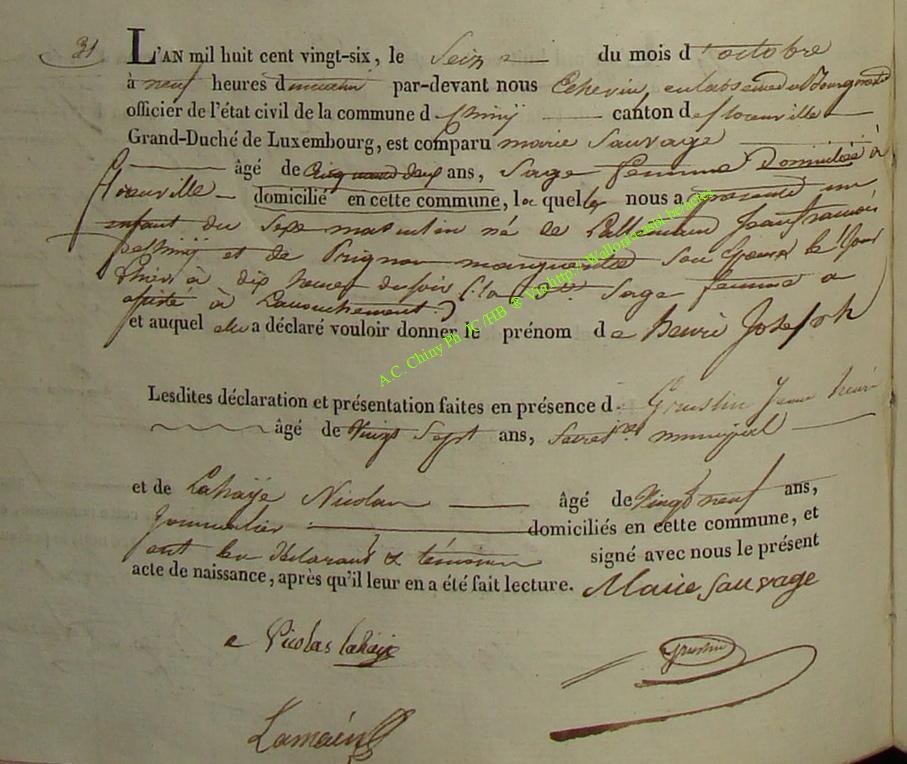 31
L'AN mil huit cent vingt-six, le Seize du mois d'octobre
à neuf heures du matin par-devant nous Echevin, en l'absence du Bourgmestre
officier de l'état civil de la commune d Chiny canton de florenville
Grand-Duché de Luxembourg, est comparu marie Sauvage
âgé de Cinquante deux ans, Sage femme Domiciliée à
florenville domicilié en cette commune, la quelle nous a présenté un
enfant du Sexe masculin né de Jean françois
de Chiny et de Pirignon marguerite Son Epouse le jour
d'hier à dix heures du soir (la dte. Sage femme a
assisté à L'accouchement)
et auquel elle a déclaré vouloir donner le prénom de Henri Joseph
Lesdites déclaration et présentation faites en présence d. Gruslin Jean henri
âgé de Vingt Sept ans, Secret.re municipal
et de Lahaÿe Nicolas âgé de Vingt neuf ans,
Journalier domiciliés en cette commune, et
ont les Déclarant & témoins signé avec nous le présent
acte de naissance, après qu'il leur en a été fait lecture. Marie Sauvage
Nicolas lahaije
Gruslin
Lamain
A.C. Chiny Ph JC/HB ® Via http://Wallonia-asbl.be